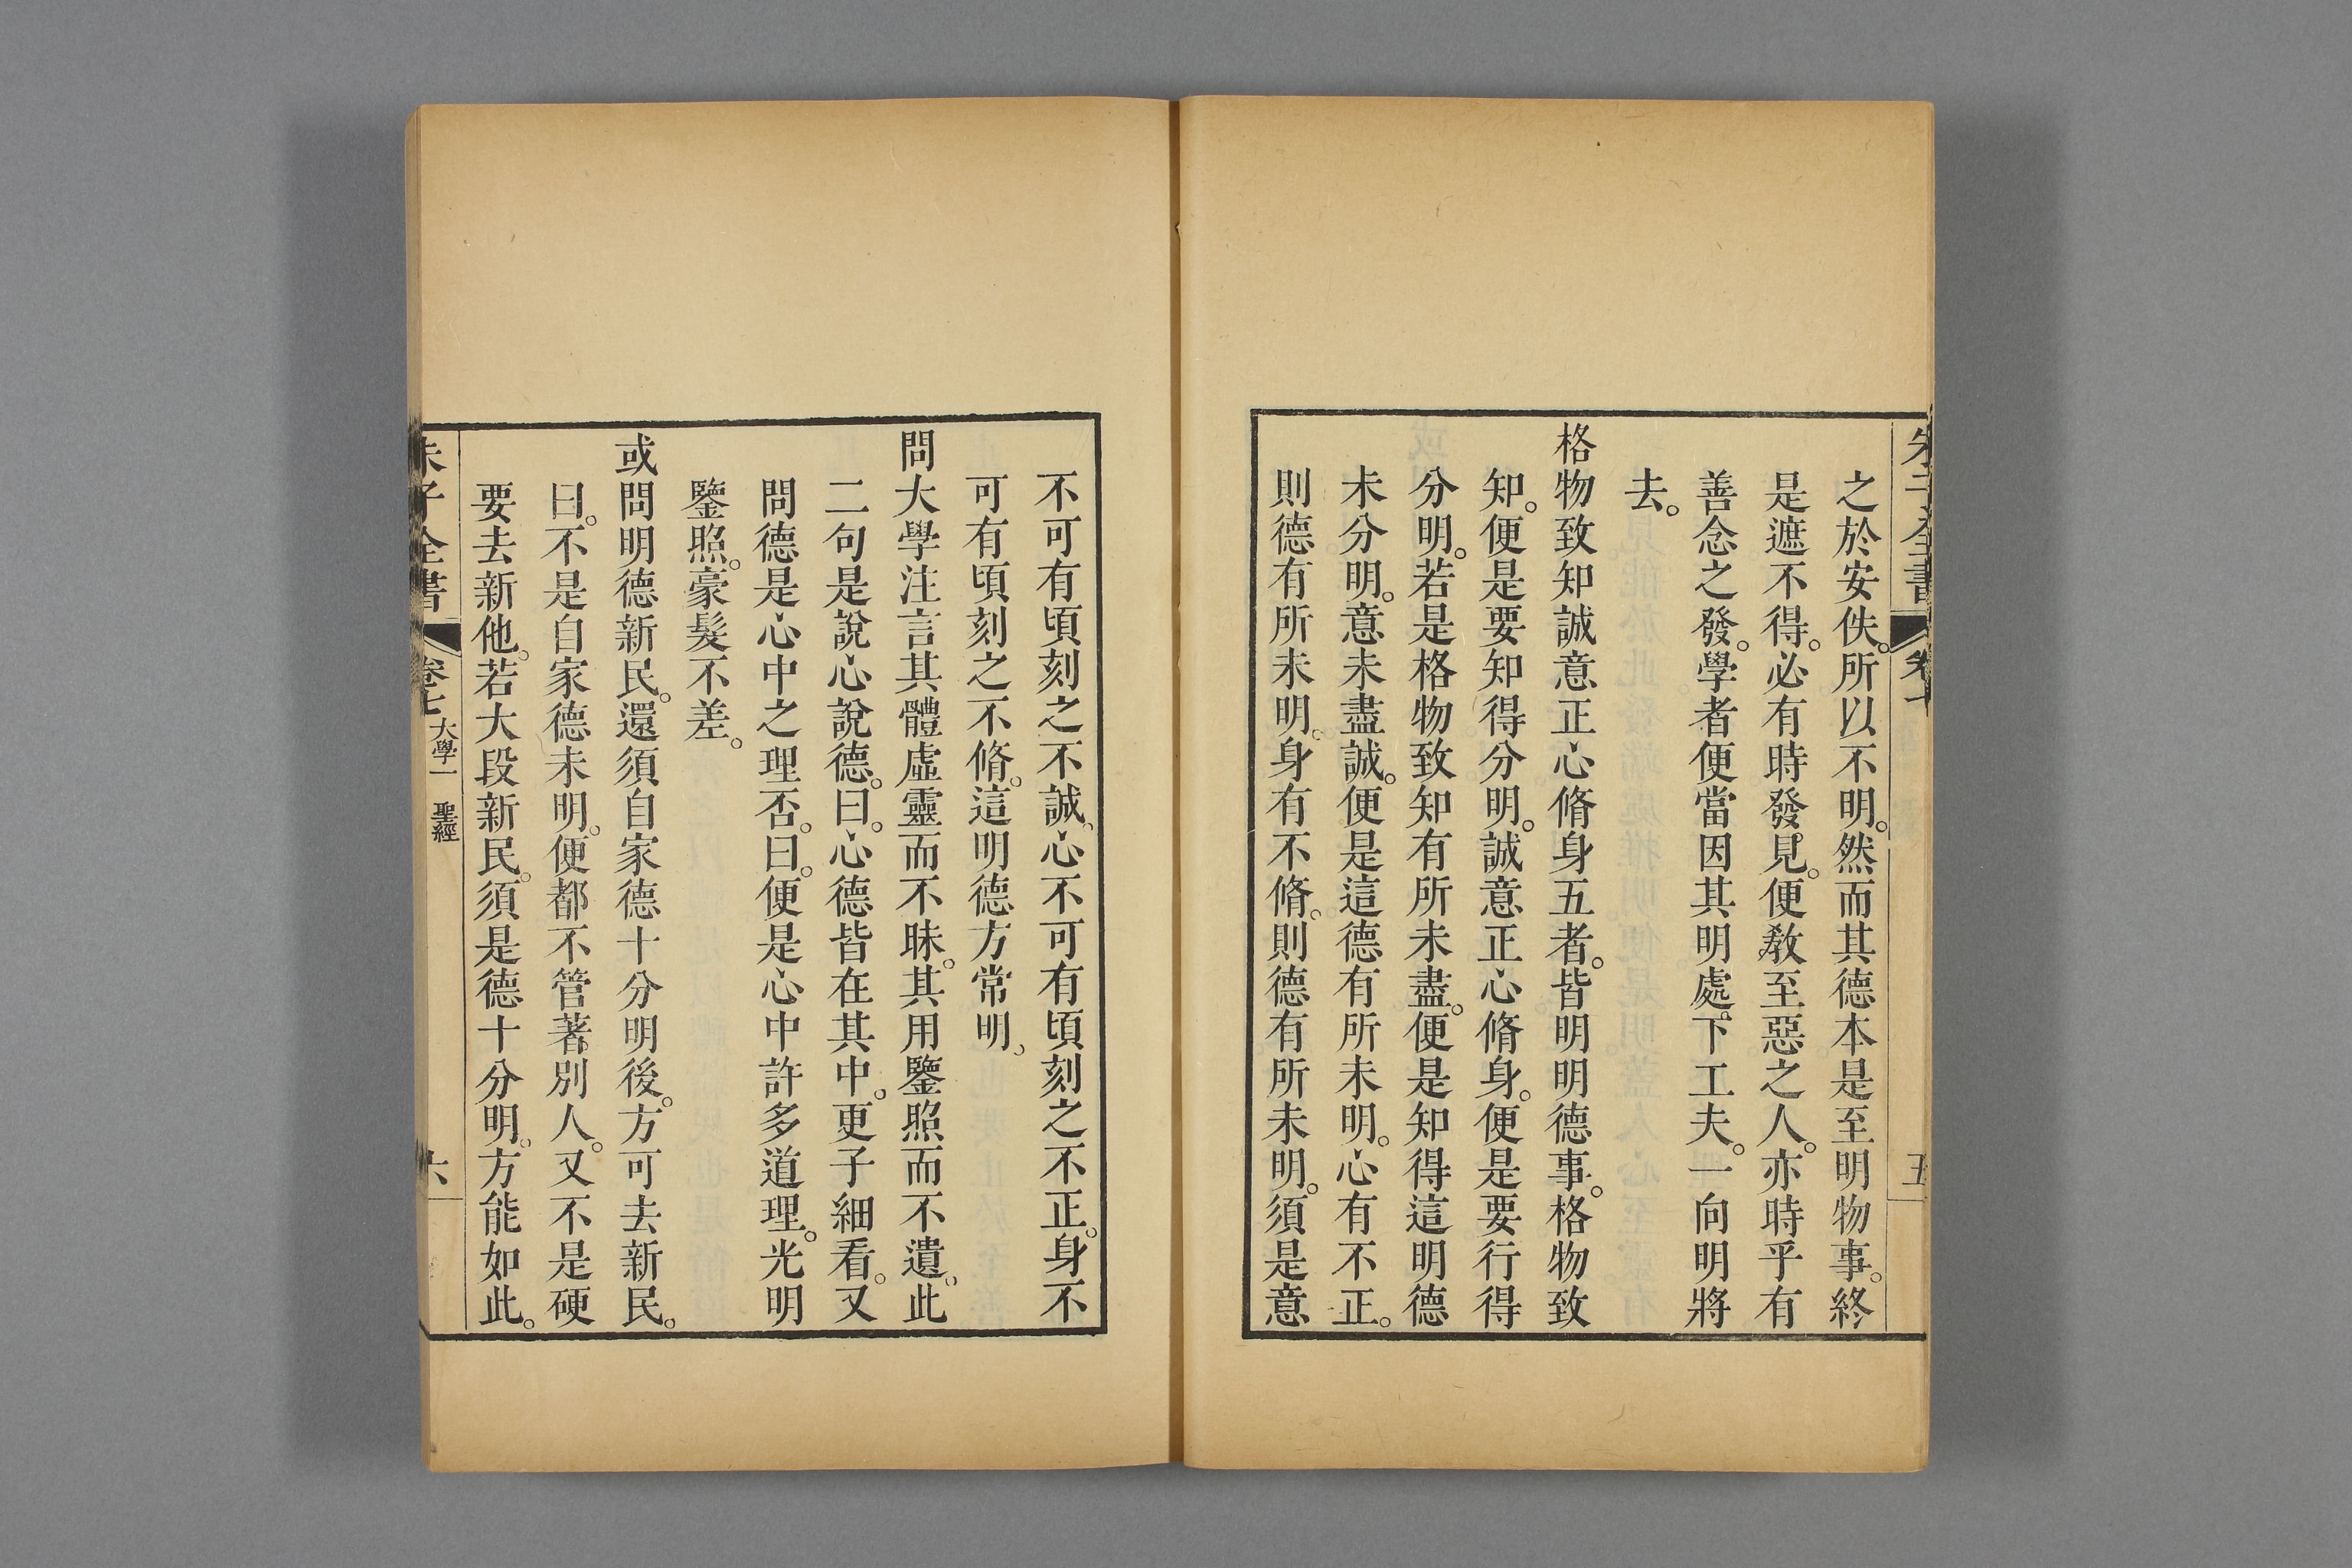 朱子全書 卷七 五
之於安佚。所以不明。然而其德本是至明物事。終
是遮不得。必有時發見。便敎至惡之人。亦時乎有
善念之發。學者便當因其明處。下工夫。一向明將
去。
格物致知誠意正心脩身五者。皆明明德事。格物致
知。便是要知得分明。誠意正心脩身。便是要行得
分明。若是格物致知有所未盡。便是知得這明德
未分明。意未盡誠。便是這德有所未明。心有不正。
則德有所未明。身有不脩。則德有所未明。須是意
不可有頃刻之不誠。心不可有頃刻之不正。身不
可有頃刻之不脩。這明德方常明。
問大學注言其體虛靈而不昧。其用鑒照而不遺。此
二句是說心說德。曰。心德皆在其中。更子細看。又
問德是心中之理否。曰。便是心中許多道理。光明
鑒照。豪髮不差。
或問明德新民。還須自家德十分明後。方可去新民。
曰。不是自家德未明。便都不管著別人。又不是硬
要去新他。若大段新民。須是德十分明。方能如此。
朱子全書 卷七 大學一 聖經 六